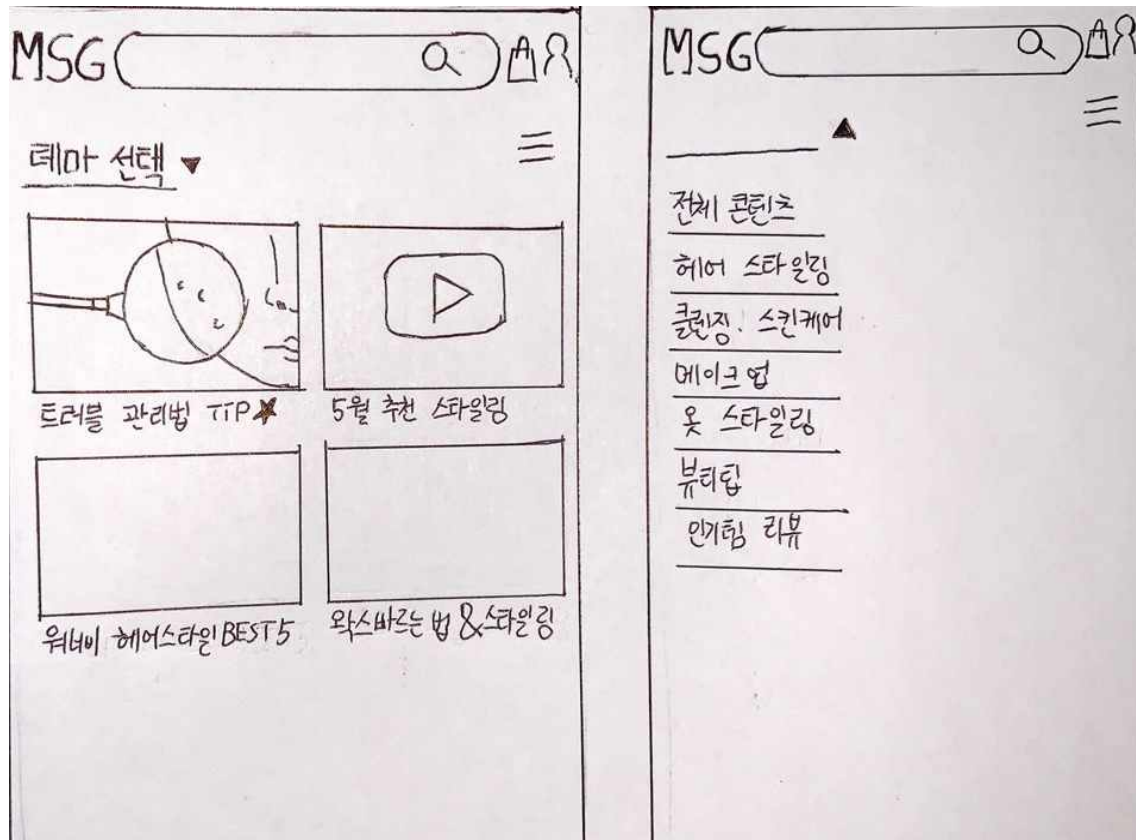 MSG
테마 선택 ▼
트러블 관리법 TIP★
5월 추천 스타일링
워너비 헤어스타일 BEST 5
왁스바르는 법 & 스타일링
MSG
▲
전체 콘텐츠
헤어 스타일링
클렌징. 스킨케어
메이크업
옷 스타일링
뷰티팁
인기템 리뷰